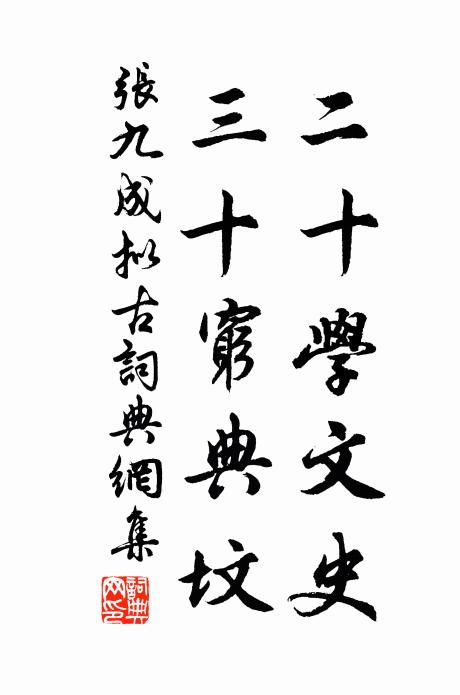 二十學文史
三十窮典墳
張九成拟古詞典網集
詞典网印